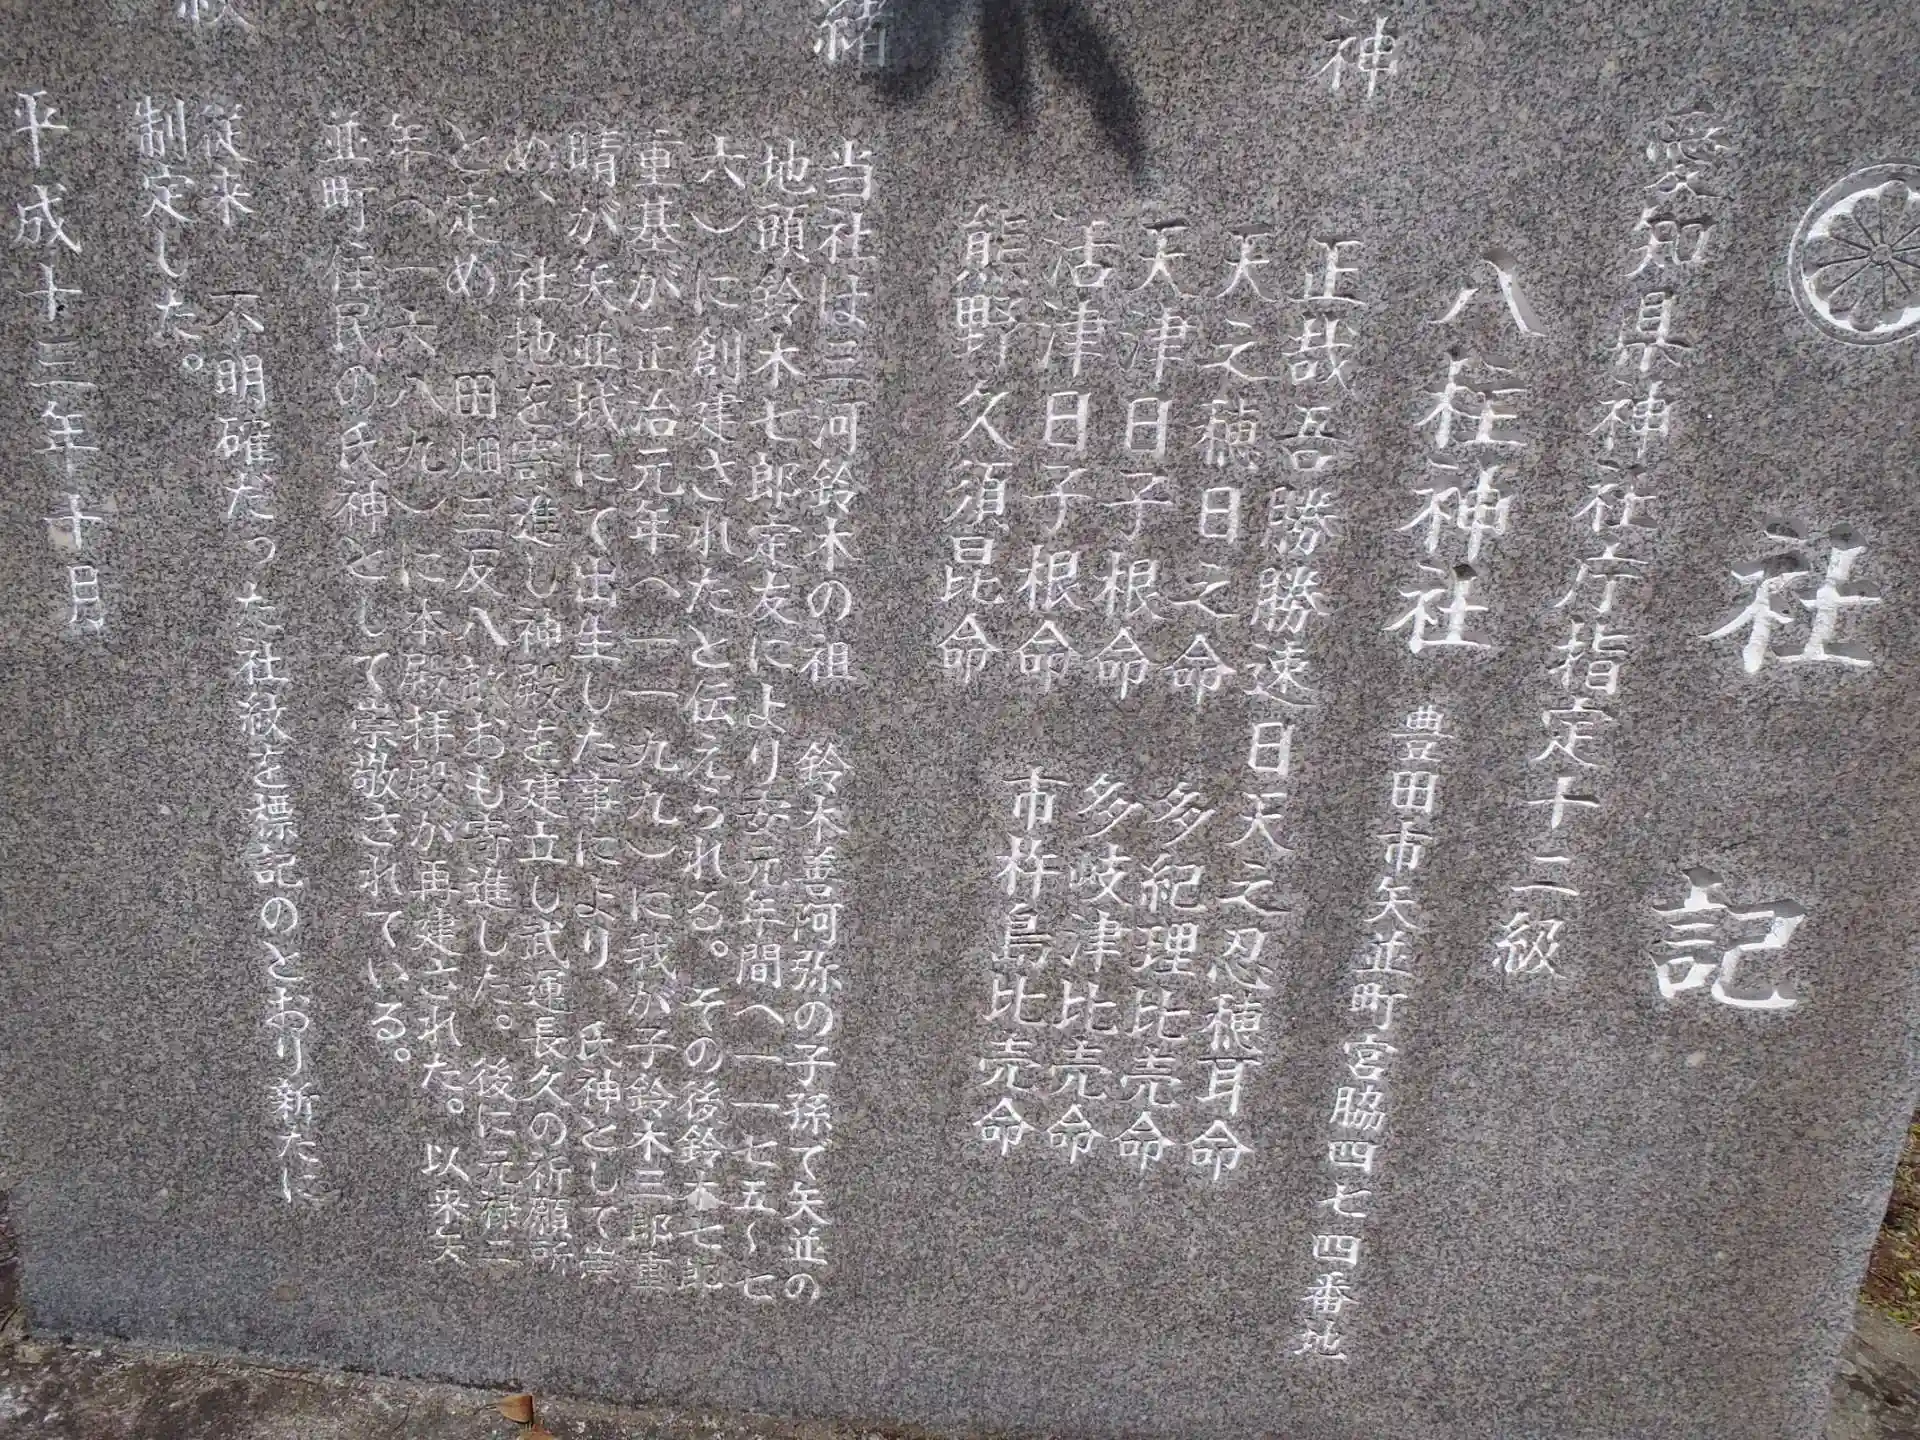 社記
愛知県神社庁指定十二級
八柱神社
豊田市矢並町宮脇四七四番地
神
正哉吾勝勝速日天之忍穂耳命
天之穂日之命 多紀理比売命
天津日子根命 多岐津比売命
活津日子根命 市杵島比売命
熊野久須昆命
緒
当社は三河鈴木の祖 鈴木善阿弥の子孫で矢並の
地頭鈴木七郎定友により安元年間へ一一七五〜七
六)に創建されたと伝えられる。その後鈴木七郎
重基が正治元年へ一一九九)に我が子鈴木三郎重
晴が矢並城にて出生した事により、氏神として崇
め、社地を寄進し神殿を建立し武運長久の祈願所
と定め、田畑三反八畝おも寄進した。後に元禄二
年へ一六八九)に本殿拝殿が再建された。以来矢
並町住民の氏神として崇敬されている。
紋
従来 不明確だった社紋を標記のとおり新たに
制定した。
平成十三年十月